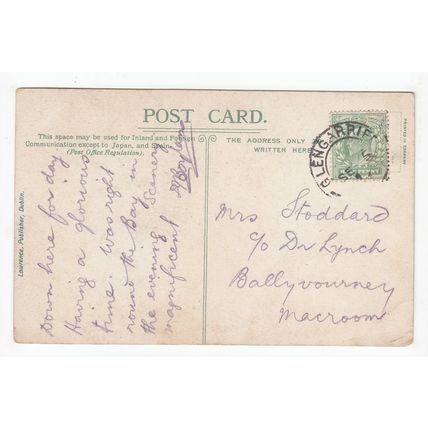 POST CARD.
This space may be used for Inland and Foreign
Communication except to Japan, and Spain.
(Post Office Regulation).
THE ADDRESS ONLY
WRITTEN HERE
PRINTED IN
GLENGARRIFF
Lawrence, Publisher, Dublin.
Down here for day
Having a glorious
time. Was right
round the Bay in
the evening Scenery
magnificent
Mrs Stoddard
c/o Dr Lynch
Ballyvourney
Macroom